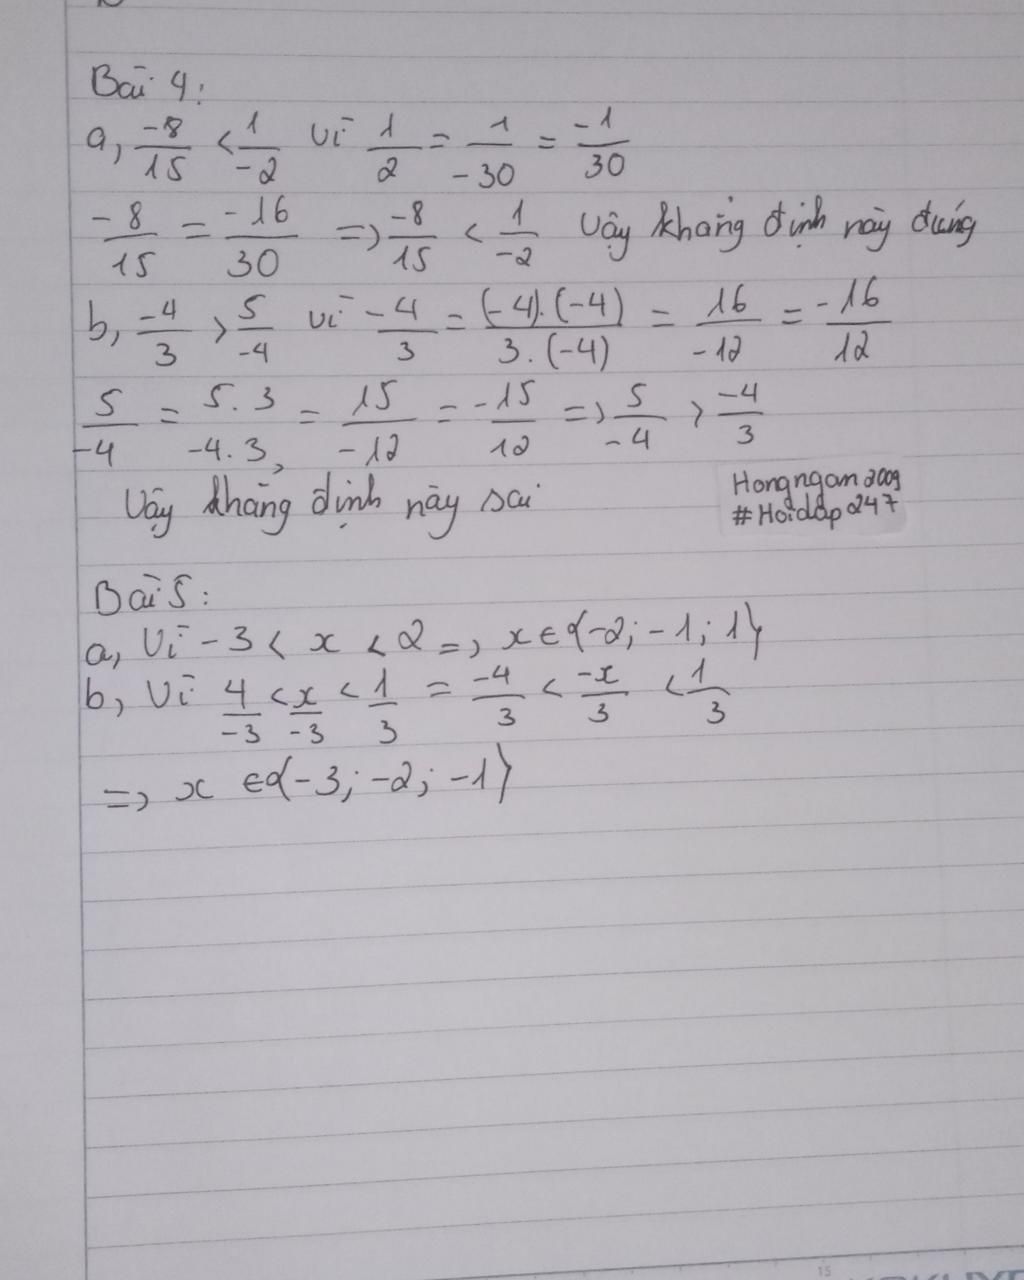 Bài 4:
a, -8/15 < 1/-2 Vì 1/2 = 1/-30 = -1/30
-8/15 = -16/30 => -8/15 < 1/-2 Vậy khẳng định này đúng
b, -4/3 > 5/-4 Vì -4/3 = (-4).(-4)/3.(-4) = 16/-12 = -16/12
5/-4 = 5.3/-4.3, = 15/-12 = -15/12 => 5/-4 > -4/3
Vậy khẳng định này sai
Hongngan2009
#Hoidap247
Bài 5:
a, Vì -3 < x < 2 => x ∈ {-2; -1; 1}
b, Vì 4/-3 < x/-3 < 1/3 = -4/3 < -x/3 < 1/3
=> x ∈ {-3; -2; -1}
15